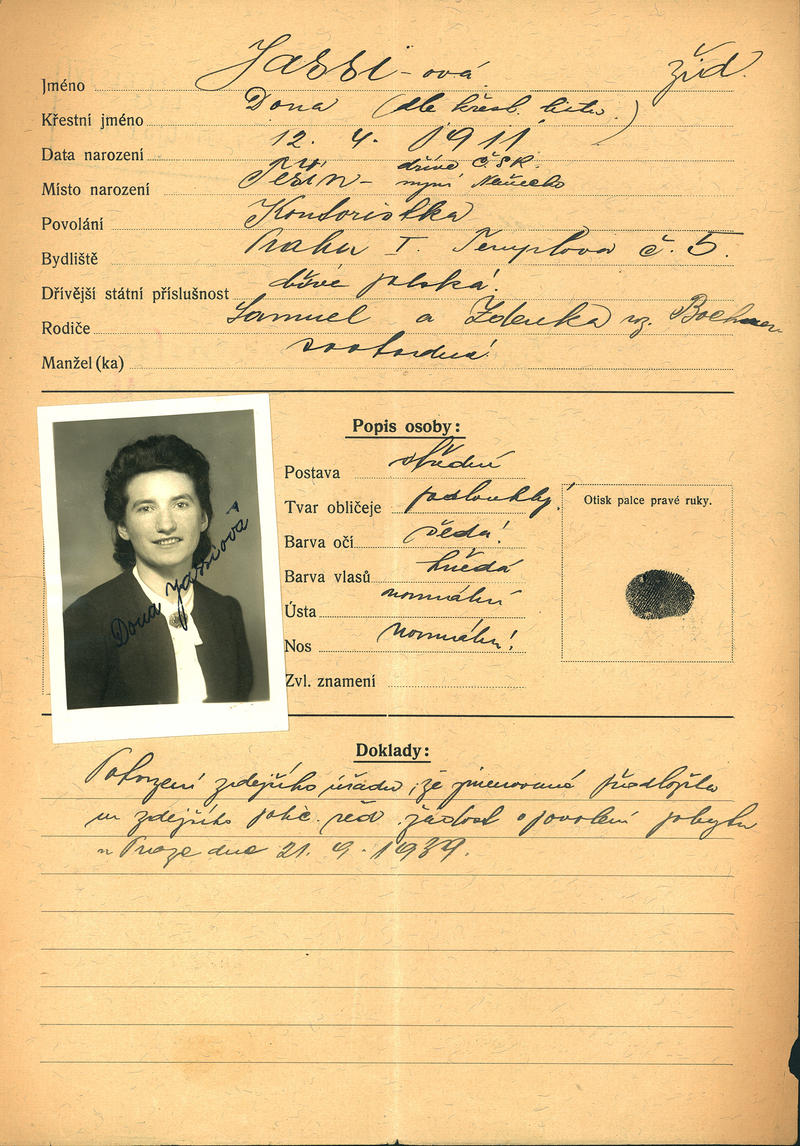 Jméno Jassi-ová žid.
Křestní jméno Dona (dle křest. listu.)
Data narození 12. 4. 1911
Místo narození Těšín - dříve ČSR. nyní Německo
Povolání Kontoristka
Bydliště Praha I. Templova č. 5.
Dřívější státní příslušnost dříve polská.
Rodiče Samuel a Zdenka roz. Bochner
Manžel (ka) svobodná!
Popis osoby:
Postava střední
Tvar obličeje podlouhlý!
Otisk palce pravé ruky.
Barva očí šedá!
Barva vlasů hnědá
Ústa normální
Nos normální!
Zvl. znamení
Dona Jassiová
Doklady:
Potvrzení zdejšího úřadu, že jmenovaná předložila
u zdejšího polic. řed. žádost o povolení pobytu
v Praze dne 21. 9. 1939.